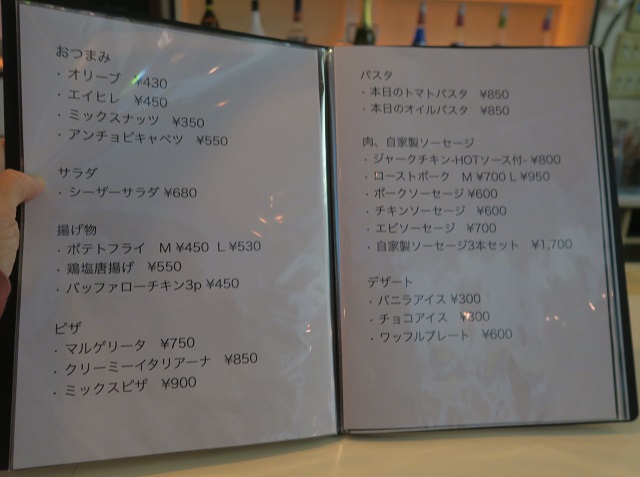 おつまみ
・オリーブ ¥430
・エイヒレ ¥450
・ミックスナッツ ¥350
・アンチョビキャベツ ¥550
サラダ
・シーザーサラダ ¥680
揚げ物
・ポテトフライ M ¥450 L ¥530
・鶏塩唐揚げ ¥550
・バッファローチキン3p ¥450
ピザ
・マルゲリータ ¥750
・クリーミーイタリアーナ ¥850
・ミックスピザ ¥900
パスタ
・本日のトマトパスタ ¥850
・本日のオイルパスタ ¥850
肉、自家製ソーセージ
・ジャークチキン-HOTソース付- ¥800
・ローストポーク M ¥700 L ¥950
・ポークソーセージ ¥600
・チキンソーセージ ¥600
・エビソーセージ ¥700
・自家製ソーセージ3本セット ¥1,700
デザート
・バニラアイス ¥300
・チョコアイス ¥300
・ワッフルプレート ¥600